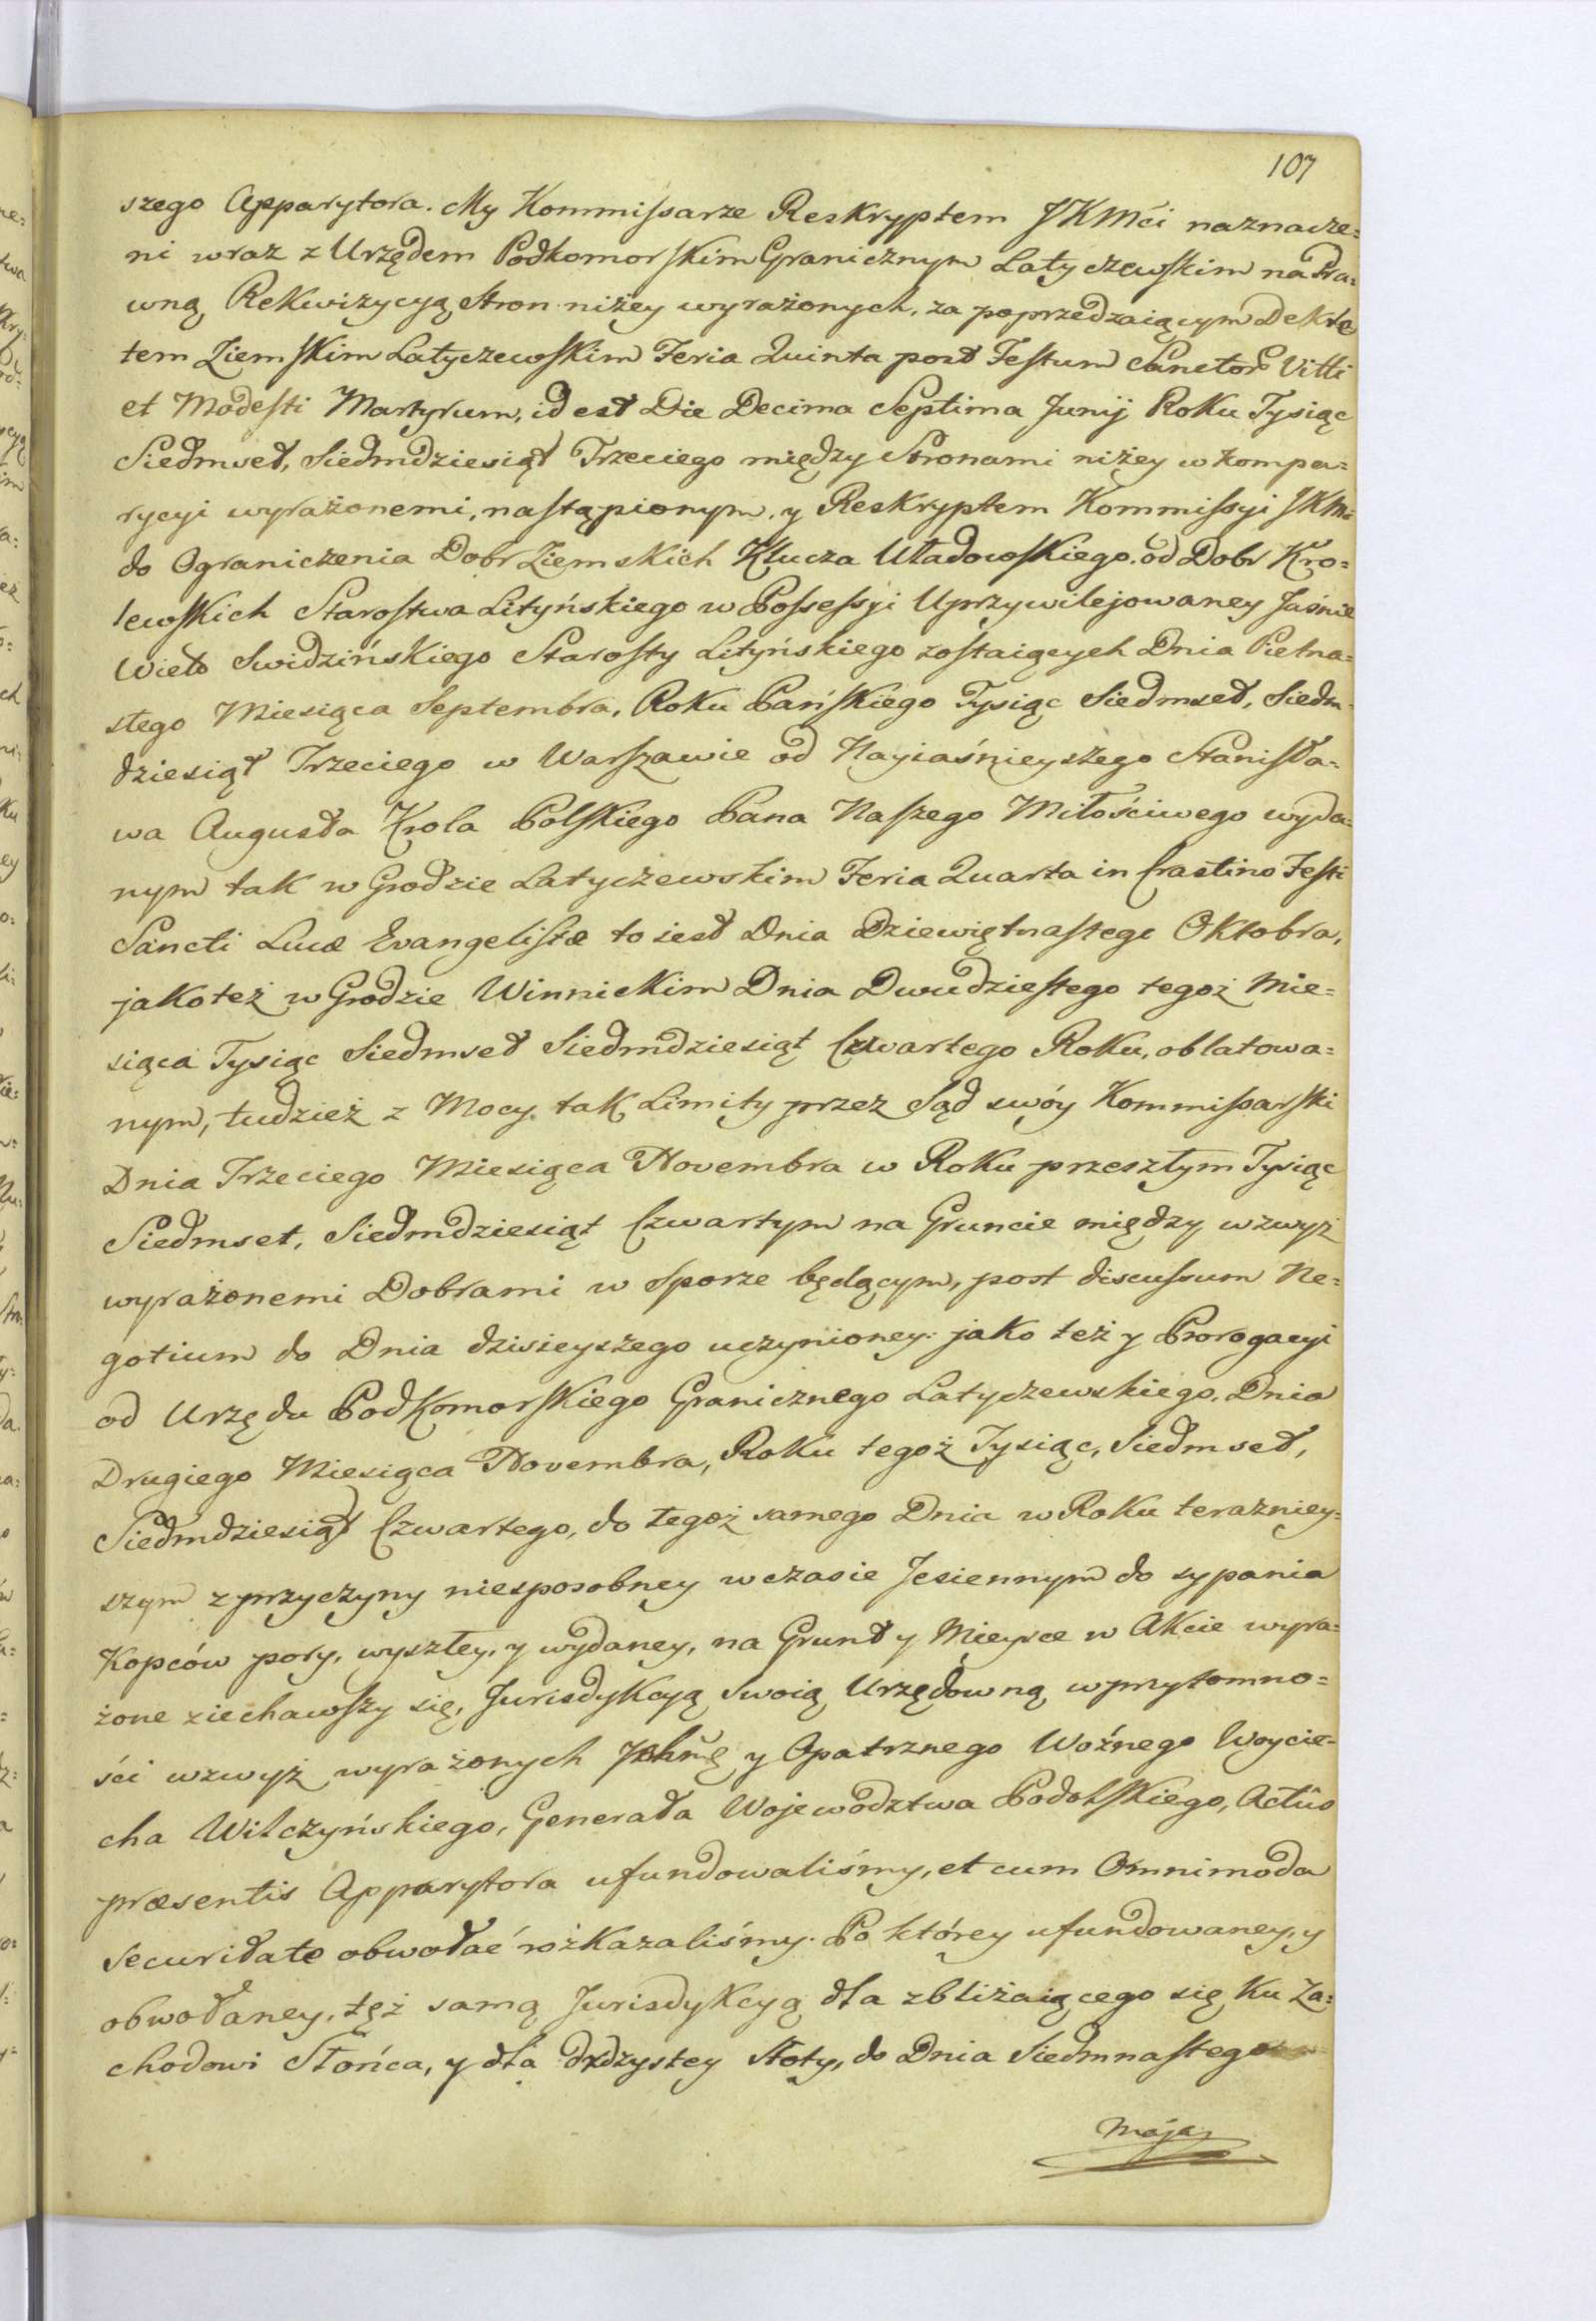 107
szego Apparytora. My Kommissarze Reskryptem JKMći naznacze=
ni wraz z Urzędem Podkomorskim Granicznym Latyczewskim na Pra=
wną Rekwizycyą stron niżey wyrażonych, za poprzedzaiącym Dekre
tem Ziemskim Latyczewskim Feria Quinta post Festum Sanctor Vitti
et Modesti Martyrum, id est Die Decima Septima Junij Roku Tysiąc
Siedmset, Siedmdziesiąt Trzeciego między Stronami niżey w kompa=
rycyi wyrażonemi, nastąpionym, y Reskryptem Kommissyi JKM=
do Ograniczenia Dobr Ziemskich Klucza Uładowskiego od Dobr Kro=
lewskich Starostwa Lityńskiego w Possessyi Uprzywilejowaney Jaśnie
Wielo Swidzińskiego Starosty Lityńskiego zostaiących Dnia Pietna=
stego Miesiąca Septembra, Roku Pańskiego Tysiąc Siedmset, Siedm=
dziesiąt Trzeciego w Warszawie od Nayiaśnieyszego Stanisła=
wa Augusta Krola Polskiego Pana Naszego Miłościwego wyda=
nym tak w Grodzie Latyczewskim Feria Quarta in Crastino Festi
Sancti Lucæ Evangelistæ to iest Dnia Dziewiętnastego Oktobra,
jako też w Grodzie Winnickim Dnia Dwudziestego tegoż Mie=
siąca Tysiąc Siedmset Siedmdziesiąt Czwartego Roku, oblatowa=
nym, tudzież z Mocy tak Limity przez Sąd swóy Kommissarski
Dnia Trzeciego Miesiąca Novembra w Roku przeszłym Tysiąc
Siedmset, Siedmdziesiąt Czwartym na Gruncie między wzwyż
wyrażonemi Dobrami w sporze będącym, post discussum Ne=
gotium do Dnia dzisieyszego uczynioney: jako też y Prorogacyi
od Urzędu Podkomorskiego Granicznego Latyczewskiego, Dnia
Drugiego Miesiąca Novembra, Roku tegoż Tysiąc, Siedmset,
Siedmdziesiąt Czwartego, do tegoż samego Dnia w Roku terazniey=
szym z przyczyny niesposobney w czasie Jesiennym do sypania
Kopców pory, wyszłey, y wydaney, na Grunt y Mieysce w Akcie wyra=
żone ziechawszy się, Jurisdykcyą Swoią Urzędowną w przytomno=
ści wzwyż wyrażonych y Opatrznego Woźnego Woycie=
cha Wilczyńskiego, Generała Województwa Podolskiego, Actûs
præsentis Apparytora ufundowaliśmy, et cum Omnimoda
Securitate obwołać rozkazaliśmy. Po którey ufundowaney, y
obwołaney, tęż samą Jurisdykcyą dla zbliżaiącego się ku Za=
chodowi Słońca, y dla dżdzystey słoty, do Dnia Siedmnastego
Maja